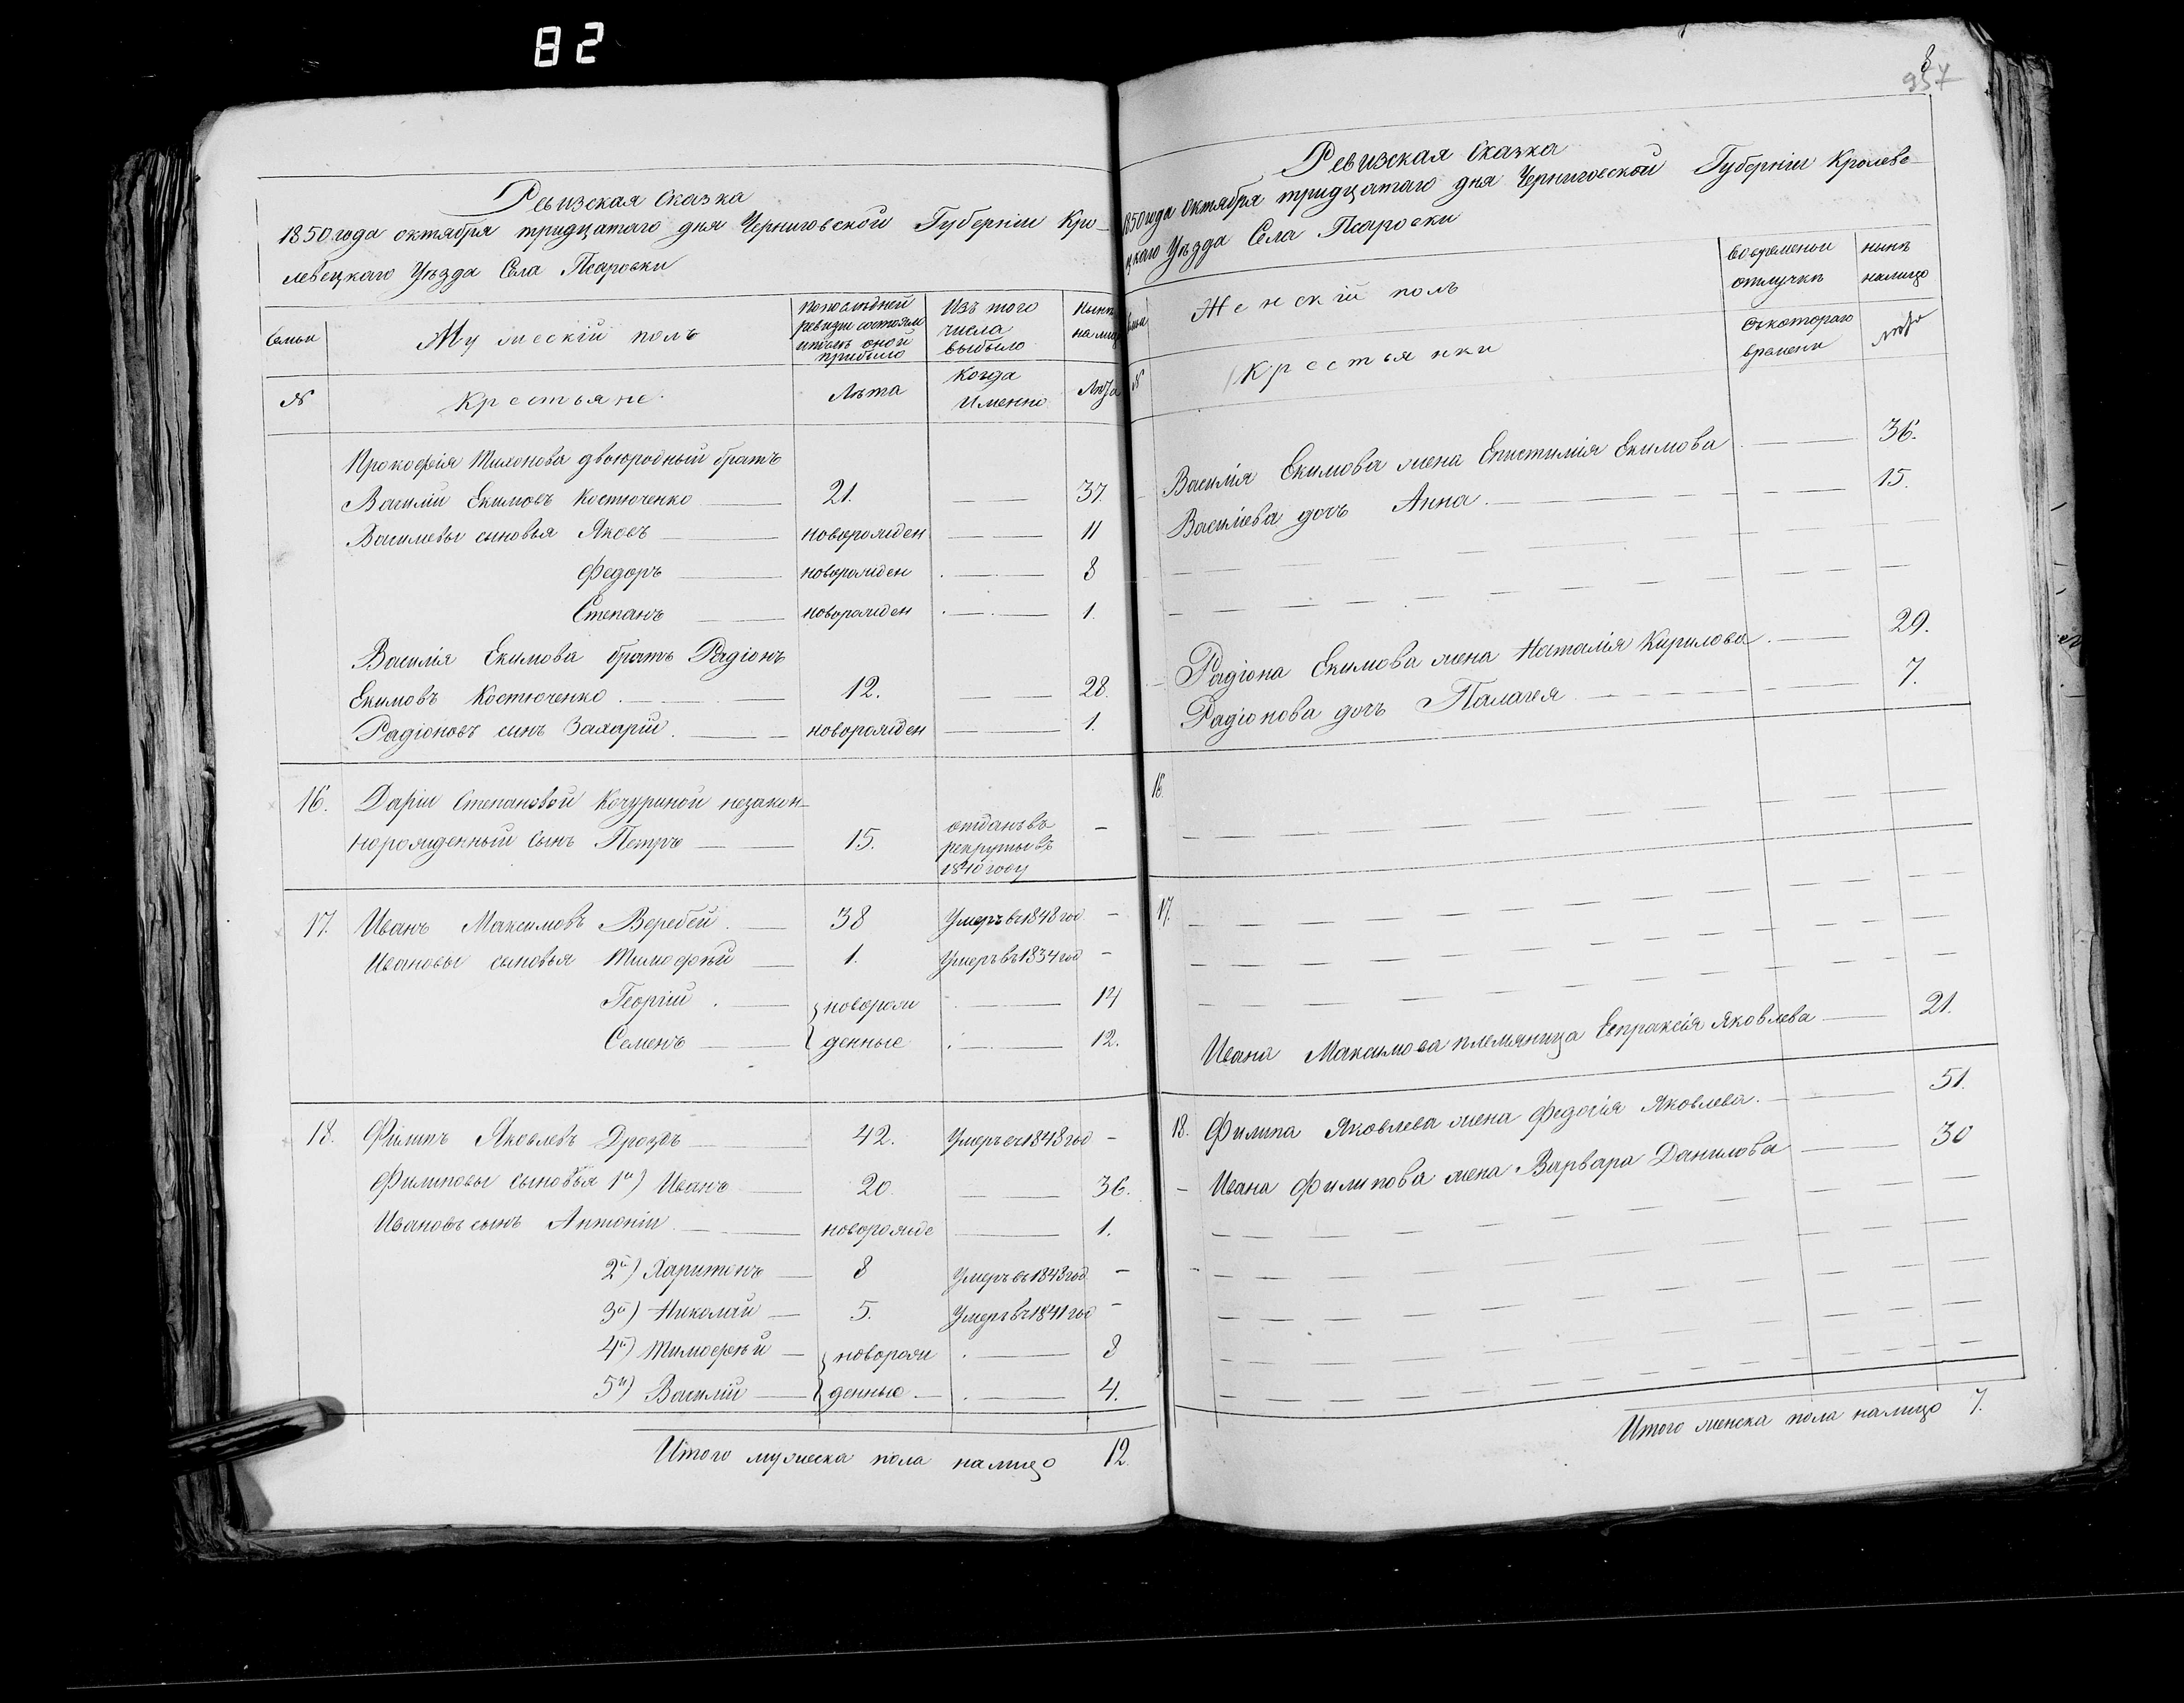 82
Ревизская Сказка
1850 года октября тридцатаго дня Черниговской Губерніи Кро-
левецкаго Уѣзда Села Псаровки
Семьи
Мужескій полъ
По послѣдней
ревизіи состояло
и послѣ оной
прибыло
Изъ того
числа
выбыло
Нынѣ
на лице
№
Крестьяне
Лѣта
Когда
Именно
Лѣта
Прокофія Тихонова двоюродный братъ
Василій Екимовъ Костюченко 21. 37.
Васильевы сыновья Яковъ новорожден 11
Федоръ новорожден 8
Степанъ новорожден 1.
Василія Екимова братъ Радіонъ
Екимовъ Костюченко 12. 28.
Радіоновъ сынъ Захарій новорожден 1.
16. Даріи Степановой Кочуриной незакон-
норожденный сынъ Петръ 15. отданъ въ
рекруты въ
1840 году
17. Иванъ Максимовъ Веребей 38 Умеръ въ 1848 год -
Ивановы сыновья Тимофѣй 1. Умеръ въ 1834 год -
Георгій новорож 14
Семенъ денные 12.
18. Филипъ Яковлевъ Дроздъ 42. Умеръ въ 1848 год -
Филиповы сыновья 1й) Иванъ 20. 36.
Ивановъ сынъ Антоній новорожде 1.
2й) Харитонъ 8 Умеръ въ 1848 год -
3й) Николай 5. Умеръ въ 1841 год -
4й) Тимофѣй новорож 8
5й) Василій денные 4.
Итого мужеска пола на лицо 12.
8
957
Ревизская Сказка
1850 года Октября тридцатаго дня Черниговской Губерніи Кролеве-
цкаго Уѣзда Села Псаровки
Женскій полъ
Во временной
отлучкѣ
нынѣ
на лицо
№
Крестьянки
Съ котораго
времени
Лѣта
Василія Екимова жена Епистимія Екимова 36.
Васильева дочь Анна 15.
Радіона Екимова жена Наталія Кирилова 29.
Радіонова дочь Палагея 7.
16.
17.
Ивана Максимова племяница Евпраксія Яковлева 21.
18. Филипа Яковлева жена Федосія Яковлева 51.
Ивана Филипова жена Варвара Данилова 30
Итого женска пола на лицо 7.